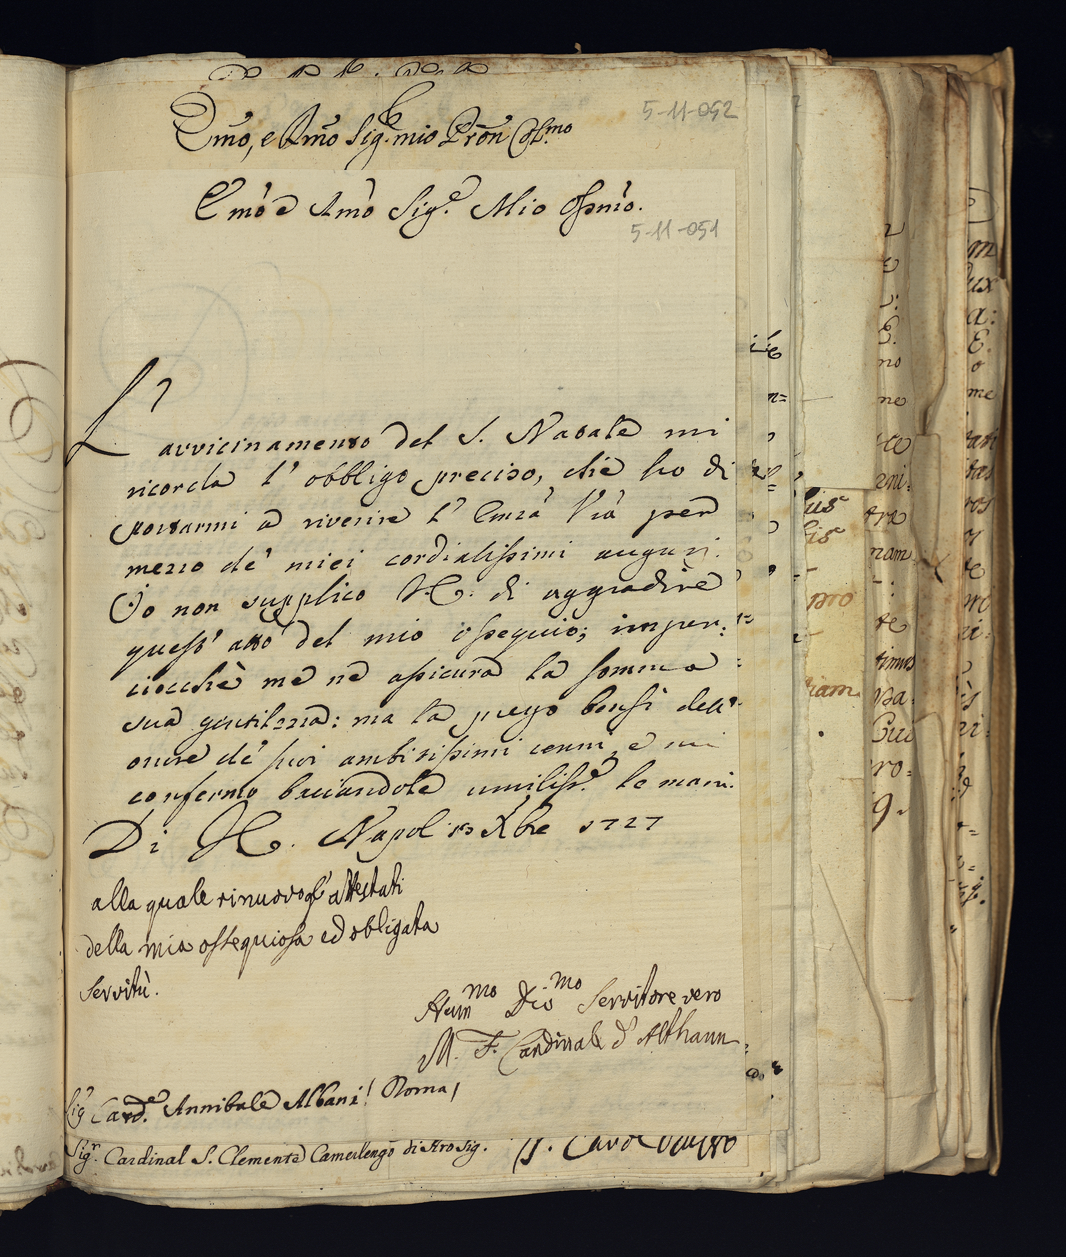 Emo, e Rmo Sig. mio Pron Col.mo
5-11-052
Emo e Rmo Sig.e Mio Ossmo.
5-11-051
L'avvicinamento del S. Natale mi
ricorda l'obbligo preciso, che ho di
portarmi a riverire l'Emza Vra per
mezzo de' miei cordialissimi auguri.
Io non supplico V.E. di aggradire
quest' atto del mio ossequio; imper:
ciocchè me ne assicura la somma
sua gentilezza: ma la prego bensì dell'
onore de' suoi ambitissimi cenni, e mi
confermo baciandole umiliss.e le mani.
Di V.E. Napoli 13 Xbre 1727
alla quale rinuovo gl' attestati
della mia ossequiosa ed obligata
servitù.
Hum.mo Dio.mo Servitore vero
M. F. Cardinale d'Althann
Sig Card.e Annibale Albani! Roma/
Sig.r Cardinal S. Clemente Camerlengo di